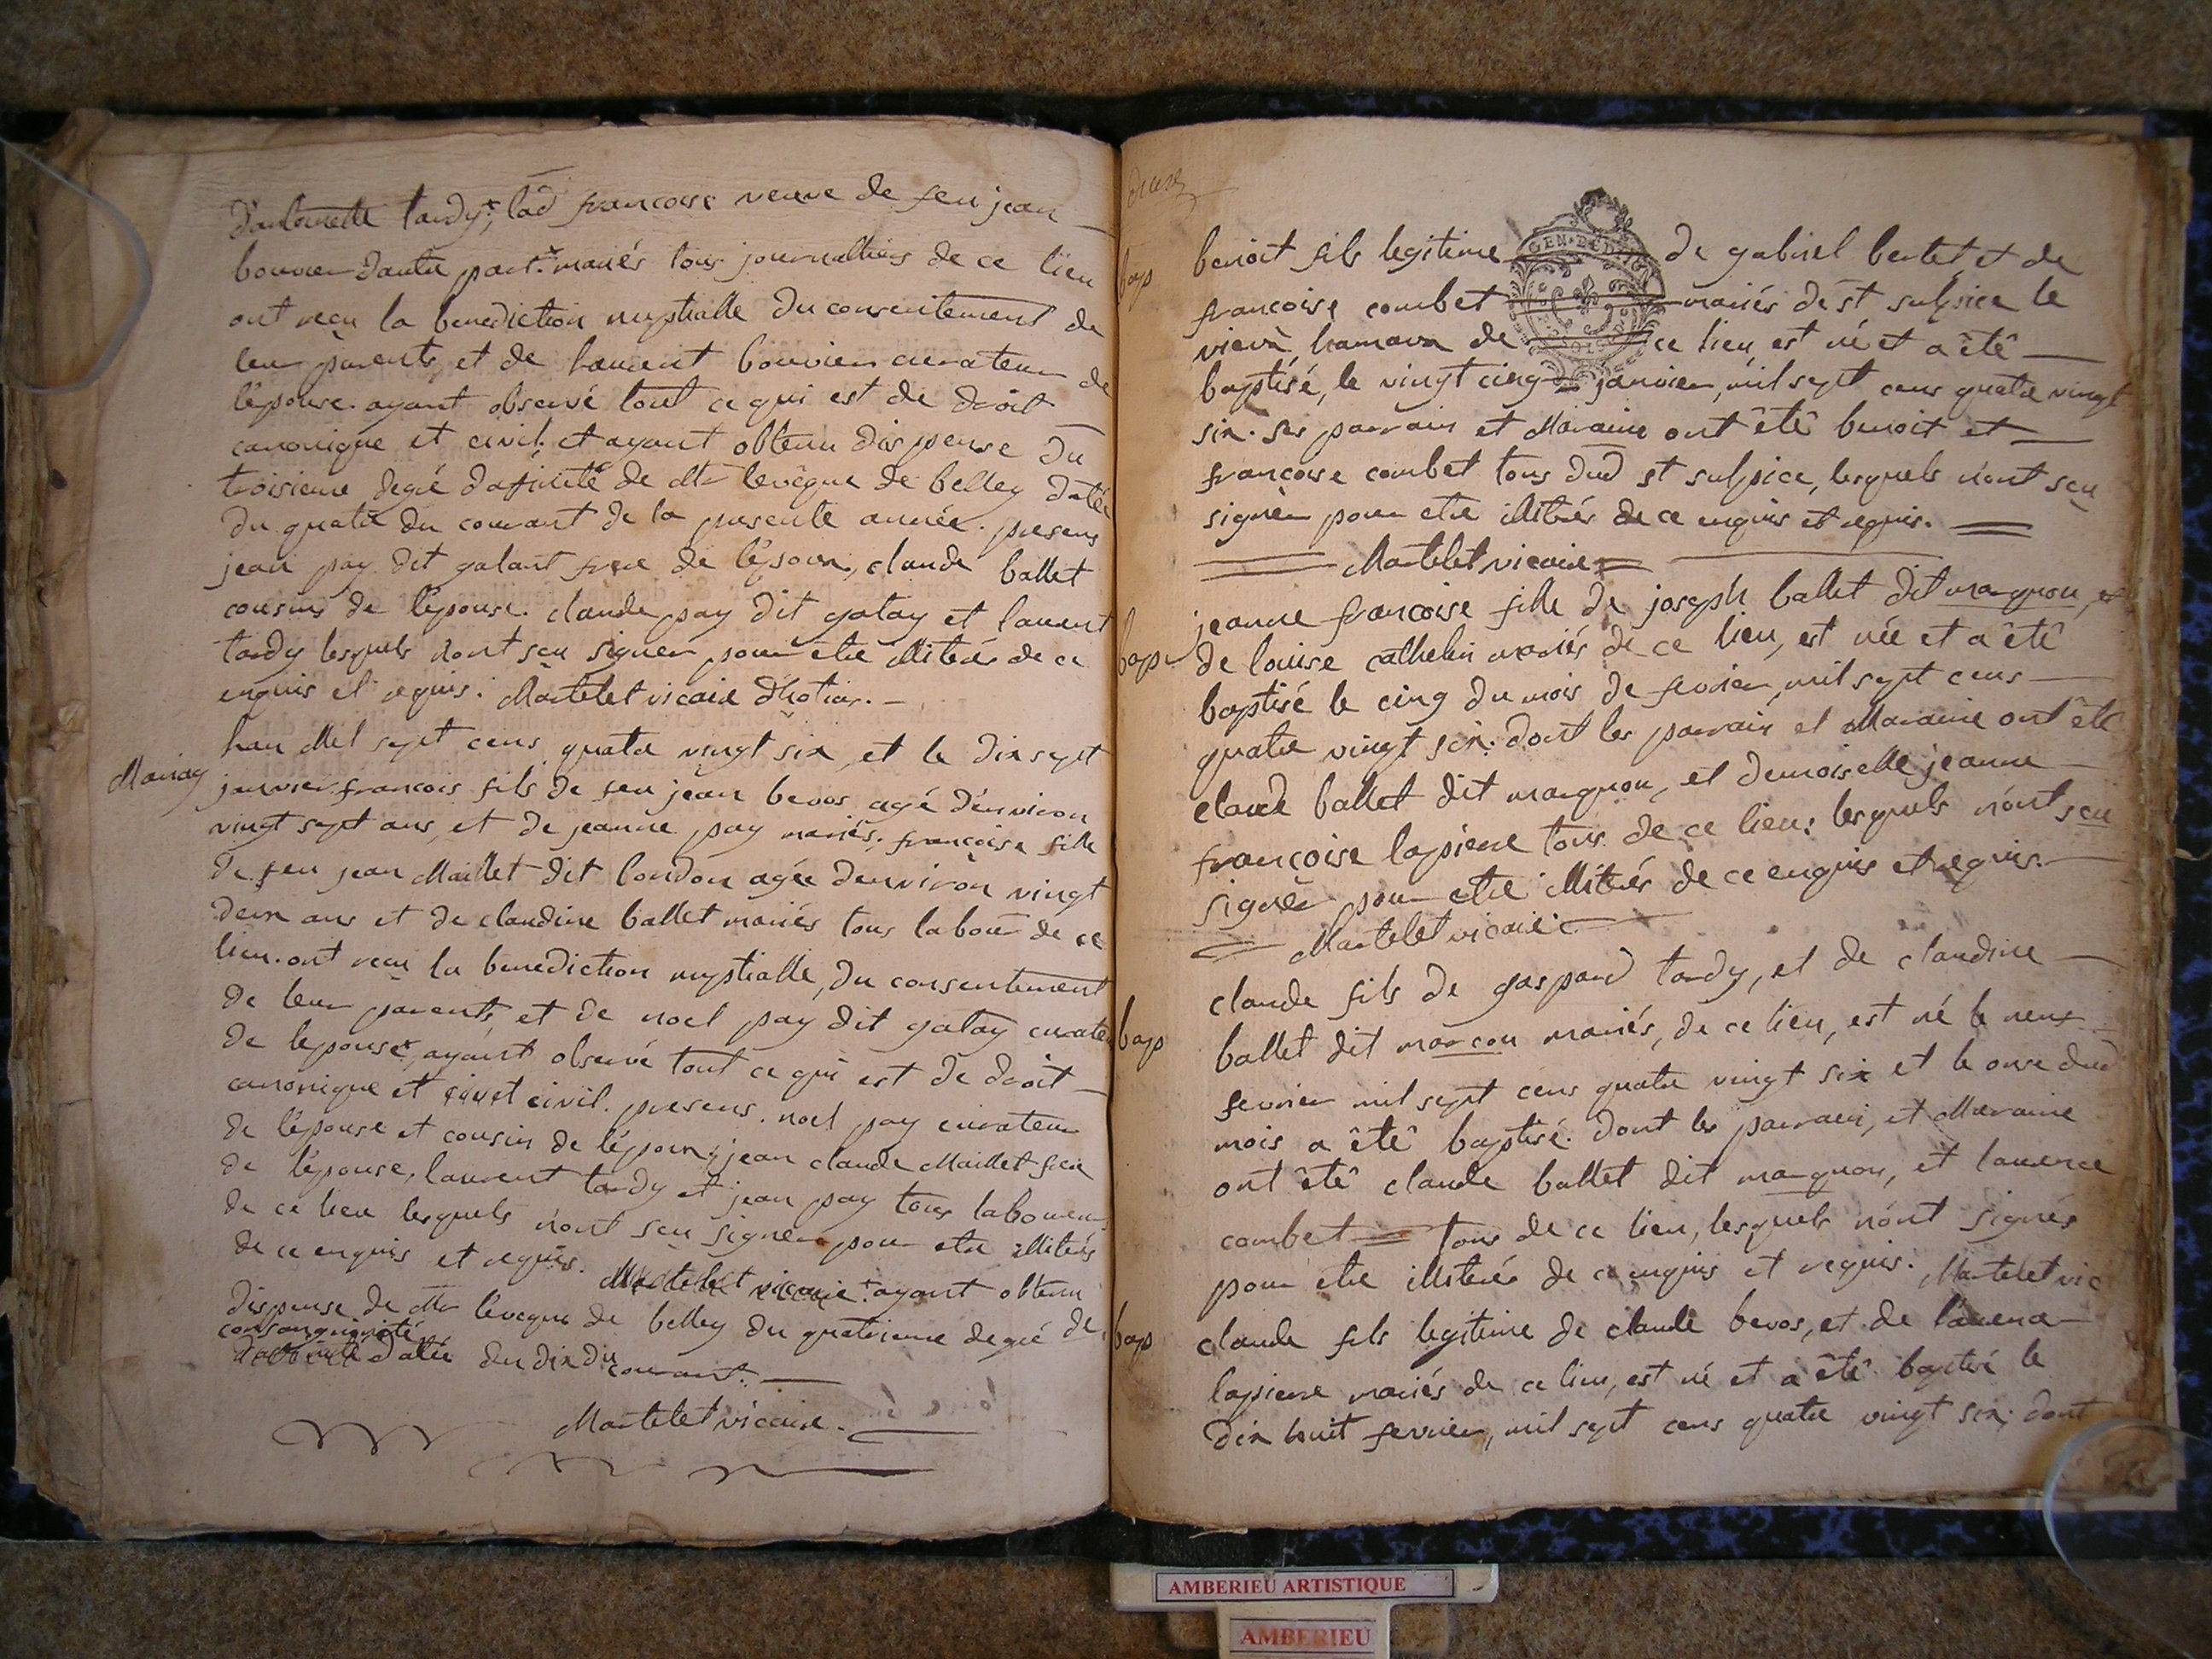 d'antoinette tardy*, lad francoise veuve de feu jean
bouvier d'autre part.* mariés tous journalliers de ce lieu
ont recu la benediction nuptialle du consentement de
leur parents, et de laurent bouvier curateur de
l'épouse. ayant observé tout ce qui est de droit
canonique et civil, et ayant obtenu dispense du
troisieme degré dafinité de Mr levêque de belley datée
du quatre du courant de la presente année. presens
jean pay dit galant frere de l'époux, claude ballet
cousins de l'épouse. claude pay dit galay et laurent
tardy lesquels n'ont scu signer pour etre illiterés de ce
enquis et requis. Martelet vicaire d'hotiar.
Mariag
lan Mil sept cens quatre vingt six, et le dix sept
janvier francois fils de feu jean bevos agé d'environ
vingt sept ans, et de jeanne pay mariés. françoise fille
de feu jean Maillet dit london agée denviron vingt
deux ans et de claudine ballet mariés tous labour de ce
lieu. ont recu la benediction nuptialle, du consentement
de leur parents, et de noel pay dit galay curateur
de lepouse*, ayant observé tout ce qui est de droit
canonique et civil. presens. noel pay curateur
de l'épouse et cousin de l'époux, jean claude Maillet frere
de l'épouse, laurent tardy et jean pay tous laboureurs
de ce lieu lesquels n'ont scu signer pour etre illiterés
de ce enquis et requis. Martelet vicaire* ayant obtenu
dispense de Mr l'eveque de belley du quatrieme degré de
consanguinité
datée du dix du courant.
Martelet vicaire.
bap
benoit fils legitime de gabriel bertet et de
francoise combet mariés de st sulpice le
vieux, hamaux de ce lieu, est né et a êtê
baptisé, le vingt cinq janvier, mil sept cens quatre vingt
six. ses parrain et Maraine ont êtê benoit et
francoise combet tous dud st sulpice, lesquels n'ont scu
signer pour etre illiterés de ce enquis et requis.
Martelet vicaire
bap
jeanne francoise fille de joseph ballet dit marquon, et
de louise cathelin mariés de ce lieu, est née et a êtê
baptisé le cinq du mois de fevrier, mil sept cens
quatre vingt six. dont les parrain et Maraine ont êtê
claude ballet dit marquon, et demoiselle jeanne
françoise lapierre tous de ce lieu. lesquels n'ont scu
signer pour etre illiterés de ce enquis et requis.
Martelet vicaire.
bap
claude fils de gaspard tardy, et de claudine
ballet dit marcon mariés, de ce lieu, est né le neuf
fevrier mil sept cens quatre vingt six et le onze dud
mois a êtê baptisé. dont les parrain, et Maraine
ont êtê claude ballet dit marquon, et laurence
combet tous de ce lieu, lesquels n'ont signés
pour etre illiterés de ce enquis et requis. Martelet vic
bap
claude fils legitime de claude bevos, et de laurence
lapierre mariés de ce lieu, est né et a êtê baptisé le
dix huit fevrier, mil sept cens quatre vingt six. dont
AMBERIEU ARTISTIQUE
AMBERIEU